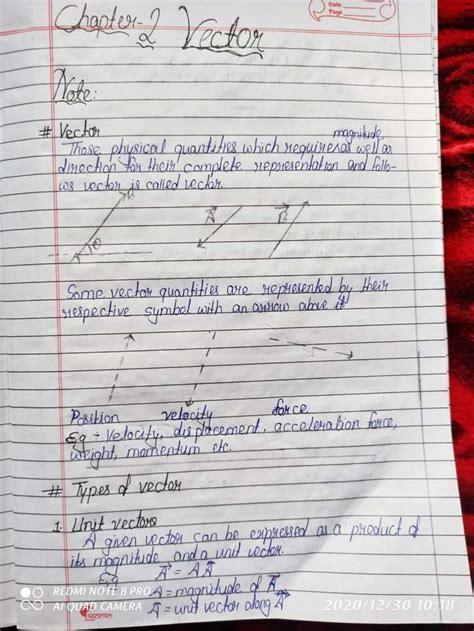 Date
Page
Chapter-2 Vector
Note:
# Vector
magnitude
Those physical quantities which requires as well as
direction for their complete representation and follo-
ws vector is called vector.
A B
Some vector quantities are represented by their
respective symbol with an arrow above it
Position velocity force
Eg ÷ Velocity, displacement, acceleration force,
weight, momentum etc.
# Types of vector
1. Unit vectors
A given vector can be expressed as a product of
its magnitude and a unit vector.
Eg A⃗ = A A⃗
A = magnitude of A⃗
A⃗ = unit vector along A⃗
REDMI NOTE 8 PRO
AI QUAD CAMERA
2020/12/30 10:18